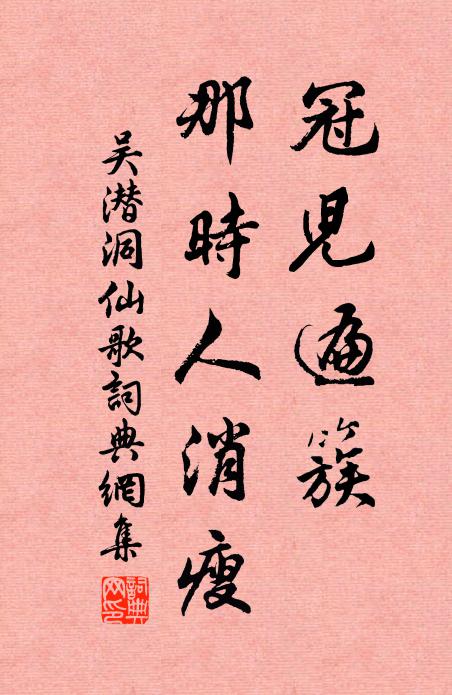 冠兒遍簇
那時人消瘦
吴潜洞仙歌詞典網集
詞典网印